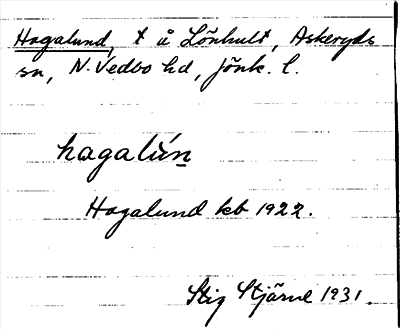 Hagalund, t å Lönhult, Askeryds
sn, N. Vedbo hd, Jönk. l.
hagalún
Hagalund kb 1922.
Stig Stjärne 1931.